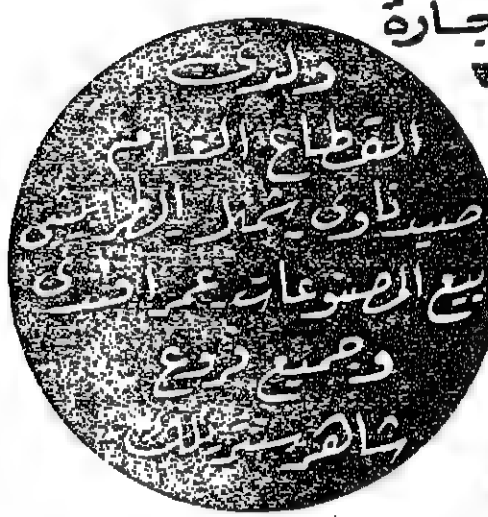 جارة
ولدى
القطاع العام
صيدناوى
بيع المصنوعات عمر افندى
وجميع فروع
شاهر